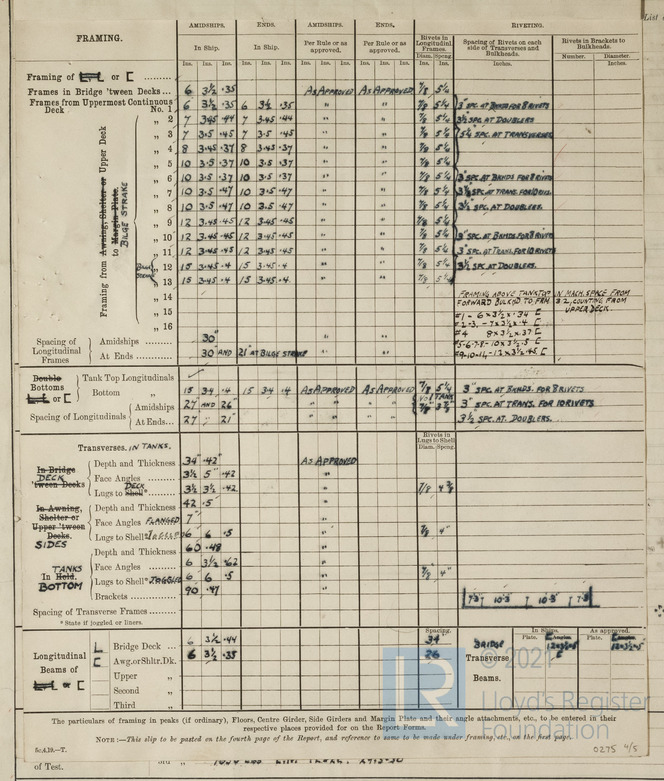 FRAMING.
AMIDSHIPS. ENDS. AMIDSHIPS. ENDS. RIVETING.
In Ship. In Ship. Per Rule or as approved. Per Rule or as approved. Rivets in Longitudinal Frames Spacing of Rivets on each side of Transverses and Bulkheads. Rivets in Brackets to Bulkheads.
Ins. Ins. Ins. Ins. Ins. Ins. Ins. Ins. Ins. Ins. Ins. Ins. Diam. Spcng. Inches. Number. Diameter. Inches.
Framing of or [
Frames in Bridge 'tween Decks ... 6 3½ .35 AS APPROVED AS APPROVED 7/8 5¼
Frames from Uppermost Continuous Deck No. 1 6 3½ .35 6 3½ .35 " " 7/8 5¼ 3" SPC. AT BANDS FOR 8 RIVETS
Framing from Awning, Shelter or Upper Deck to Margin Plate. BILGE STRAKE
" 2 7 3.45 .44 7 3.45 .44 " " 7/8 5¼ 3½ SPC. AT DOUBLERS
" 3 7 3.5 .45 7 3.5 .45 " " 7/8 5¼ 5¼ SPC. AT TRANSVERSES
" 4 8 3.45 .37 8 3.45 .37 " " 7/8 5¼
" 5 10 3.5 .37 10 3.5 .37 " " 7/8 5¼
" 6 10 3.5 .37 10 3.5 .37 " " 7/8 5¼ 3" SPC. AT BANDS FOR 8 RIVETS
" 7 10 3.5 .47 10 3.5 .47 " " 7/8 5¼ SPC. AT TRANS. FOR 10 RIVS.
" 8 10 3.5 .47 10 3.5 .47 " " 7/8 5¼ 3½ SPC. AT DOUBLERS.
" 9 12 3.45 .45 12 3.45 .45 " " 7/8 5¼
" 10 12 3.45 .45 12 3.45 .45 " " 7/8 5¼ 3" SPC. AT BANDS FOR 8 RIVETS
" 11 12 3.45 .45 12 3.45 .45 " " 7/8 5¼ 3" SPC. AT TRANS. FOR 10 RIVETS
" 12 15 3.45 .4 15 3.45 .4 " " 7/8 5¼ 3½ SPC. AT DOUBLERS.
" 13 15 3.45 .4 15 3.45 .4 " " 7/8 5¼
" 14 FRAMING ABOVE TANK TOP IN MACH. SPACE FROM
" 15 FORWARD BULKHD TO FRM. 32, COUNTING FROM UPPER DECK.
" 16 #1 - 6 x 3½ x .34 [
#2-3, - 7 x 3½ x .4 [
Spacing of Longitudinal Frames Amidships 30" #4 8 x 3½ x .37 [
#5-6-7-8 - 10 x 3½ .5 [
At Ends 30" AND 21" AT BILGE STRAKE #9-10-11 - 12 x 3½ .45 [
Double Bottoms or [ Tank Top Longitudinals
Bottom " 15 3.4 .4 15 3.4 .4 AS APPROVED AS APPROVED 7/8 5¼ 3" SPC. AT BANDS. FOR 8 RIVETS
Spacing of Longitudinals Amidships 27 AND 26" " " " " 3" SPC. AT TRANS. FOR 10 RIVETS
At Ends... 27 21" " " " " 3½ SPC. AT. DOUBLERS.
Transverses. IN TANKS. Rivets in Lugs to Shell Diam. Spcng.
In Bridge 'tween Decks DECK Depth and Thickness 34" .42" AS APPROVED
Face Angles 3½ 5" .42 "
Lugs to Shell* DECK 3½ 3½ .42 " 7/8 4⅜
In Awning, Shelter or Upper 'tween Decks. SIDES Depth and Thickness 42 .5" "
Face Angles FLANGED 7" "
Lugs to Shell* JOGGLED 6 6 .5 " 7/8 4"
TANKS In Hold. BOTTOM Depth and Thickness 60 .48 "
Face Angles 6 3½ .62 "
Lugs to Shell* JOGGLED 6 6 .5 " 7/8 4"
Brackets 90 .47 "
Spacing of Transverse Frames 7'3" 10'3" 10'3" 7'3
* State if joggled or liners.
Longitudinal Beams of or [
Spacing. In Ship. As approved.
L Bridge Deck ... 6 3½ .44 34" BRIDGE Plate. Angles. Plate. Angles.
[ Awg. or Shltr. Dk. 6 3½ .35 26 Transverse Beams.
Upper "
Second "
Third "
© 2021
LR
Lloyd's Register Foundation
The particulars of framing in peaks (if ordinary), Floors, Centre Girder, Side Girders and Margin Plate and their angle attachments, etc., to be entered in their
respective places provided for on the Report Forms.
NOTE :—This slip to be posted on the fourth page of the Report, and reference to same to be made under framing, etc., on the first page.
5c.4.19.—T.
0275 4/5
of Test.